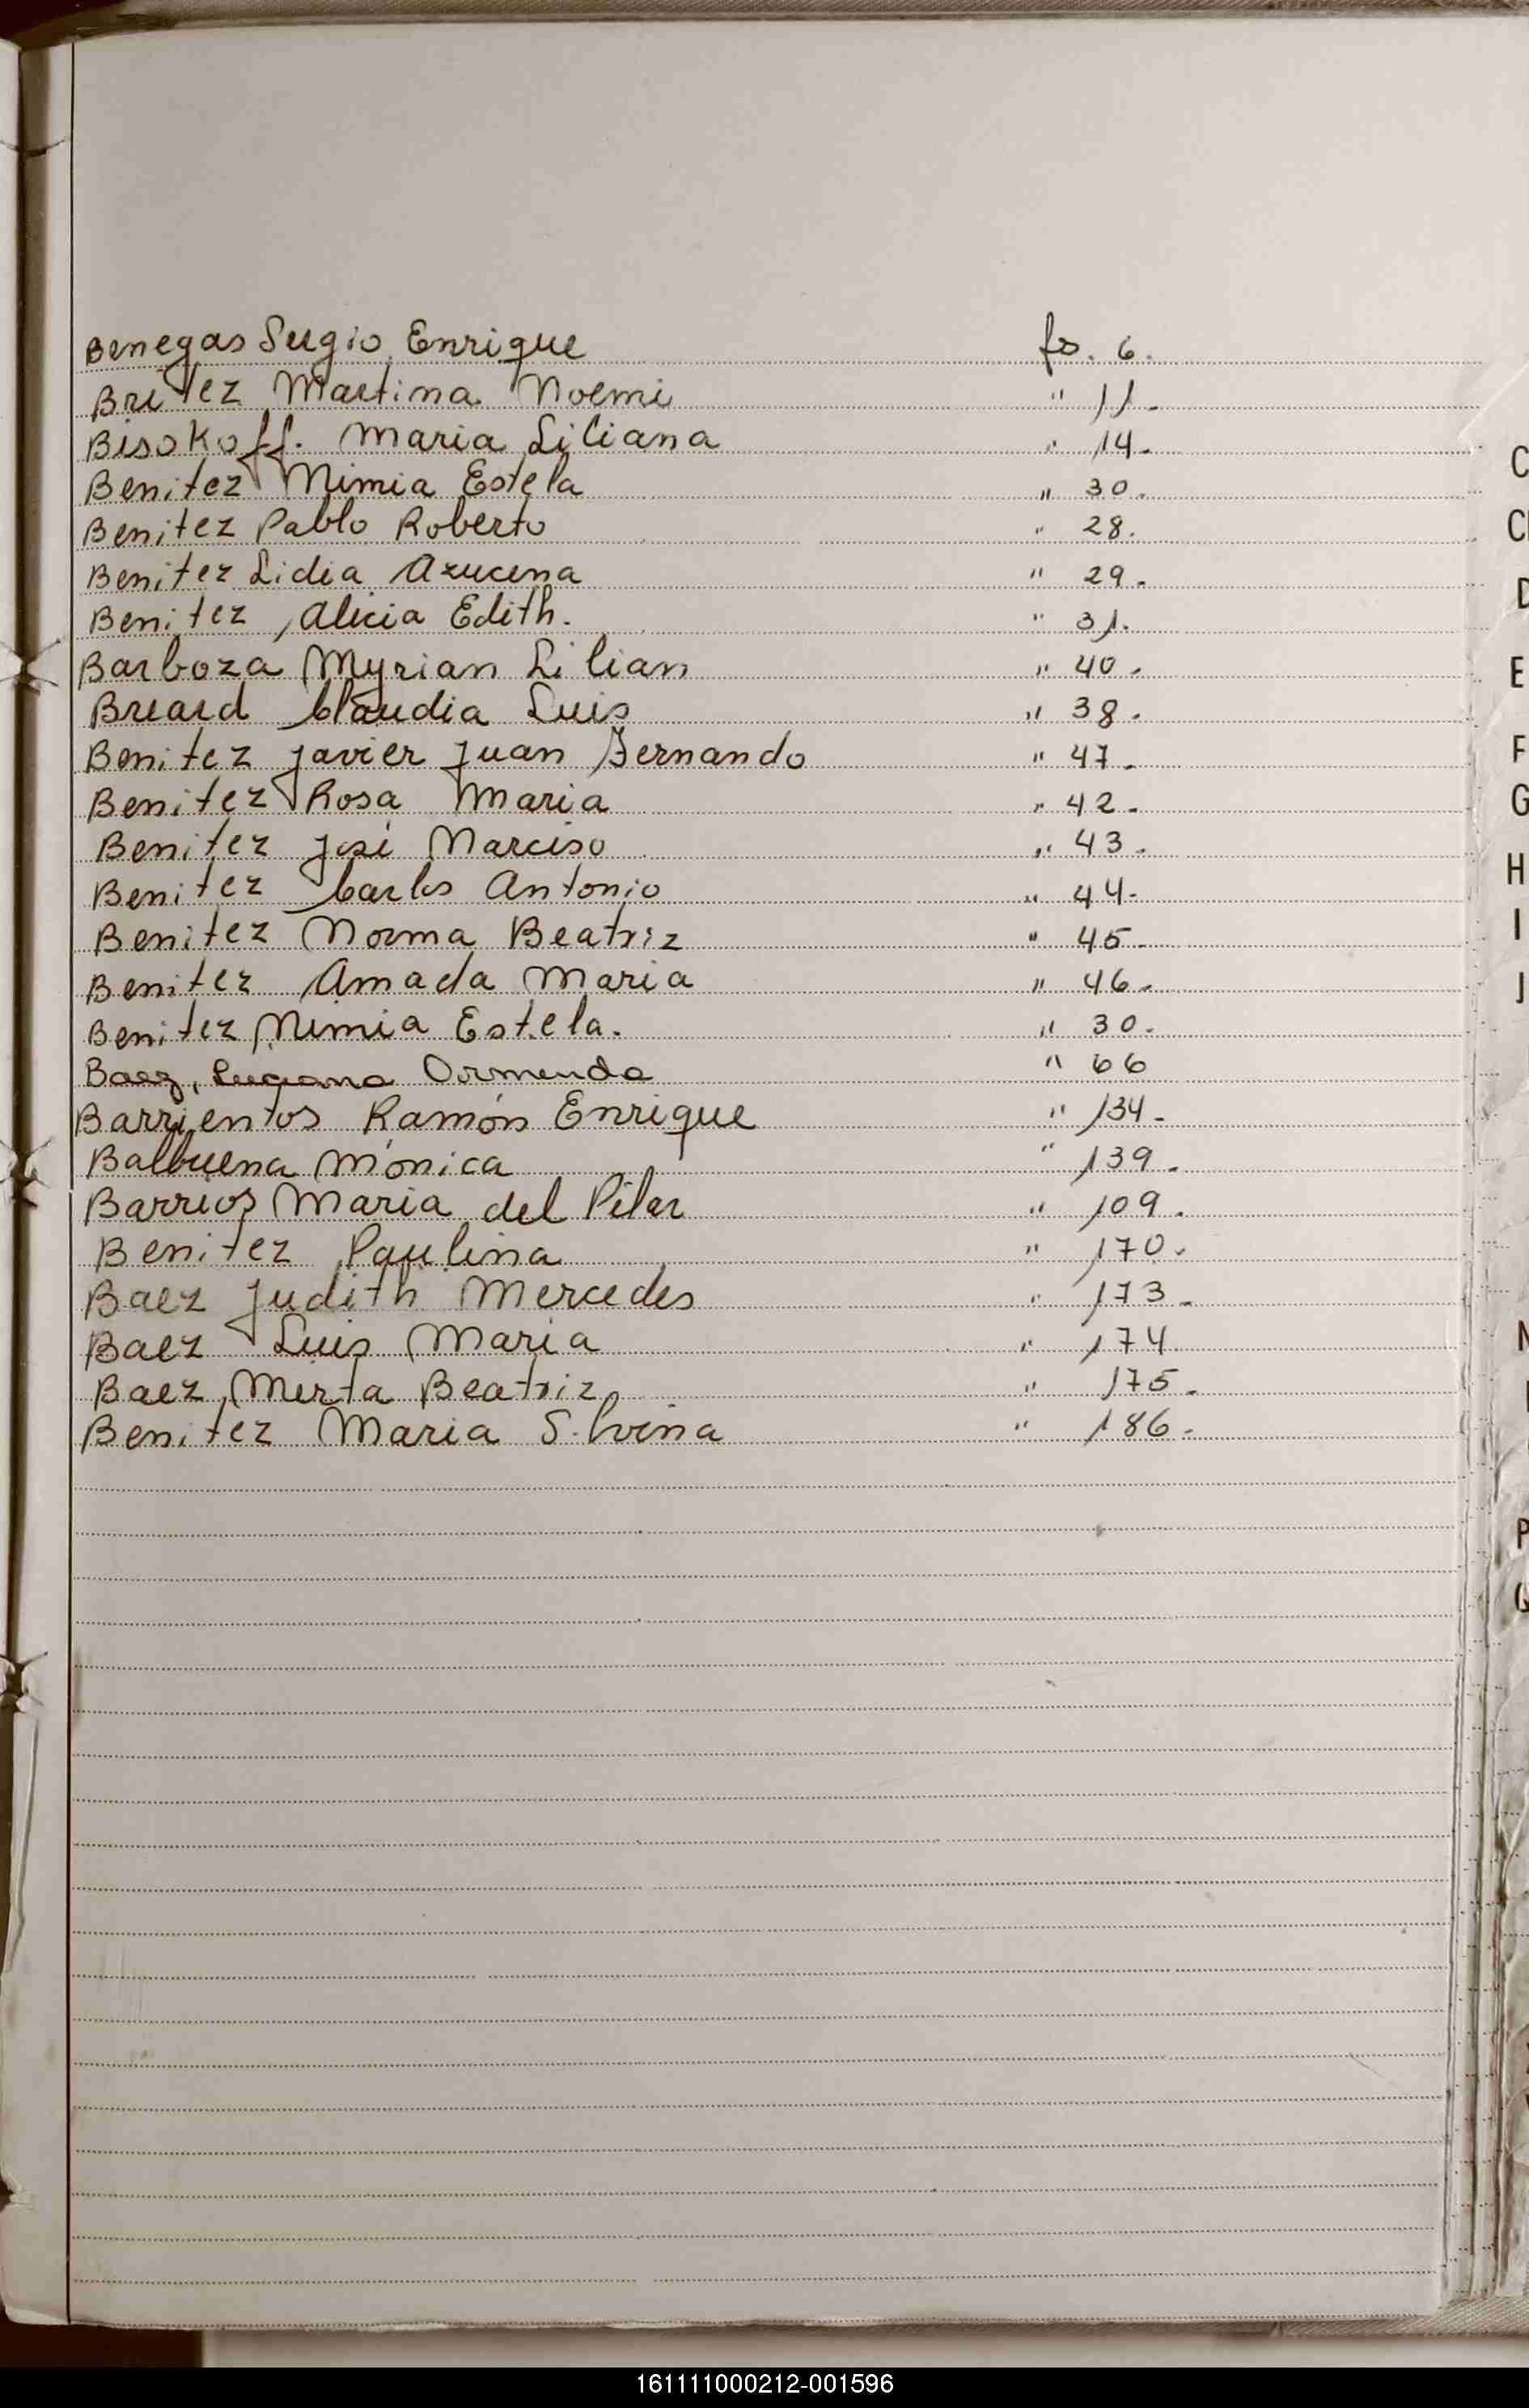 Benegas Sergio Enrique fs. 6.
Britez Martina Noemi " 11.
Bisokoff. Maria Liliana " 14.
Benitez Mimia Estela " 30.
Benitez Pablo Roberto " 28.
Benitez Lidia Azucena " 29.
Benitez, Alicia Edith. " 31.
Barboza Myrian Lilian " 40.
Breard Claudia Luis " 38.
Benitez Javier Juan Fernando " 47.
Benitez Rosa Maria " 42.
Benitez José Narciso " 43.
Benitez Carlos Antonio " 44.
Benitez Norma Beatriz " 45.
Benitez Amada Maria " 46.
Benitez Mimia Estela. " 30.
Baez, Luciana " 66
Barrientos Ramón Enrique " 134.
Balbuena Mónica " 139.
Barrios Maria del Pilar " 109.
Benitez Paulina " 170.
Baez Judith Mercedes " 173.
Baez Luis Maria " 174
Baez, Mirta Beatriz " 175.
Benitez Maria Silvina " 186.
C
D
E
F
G
H
I
J
N
P
Q
161111000212-001596